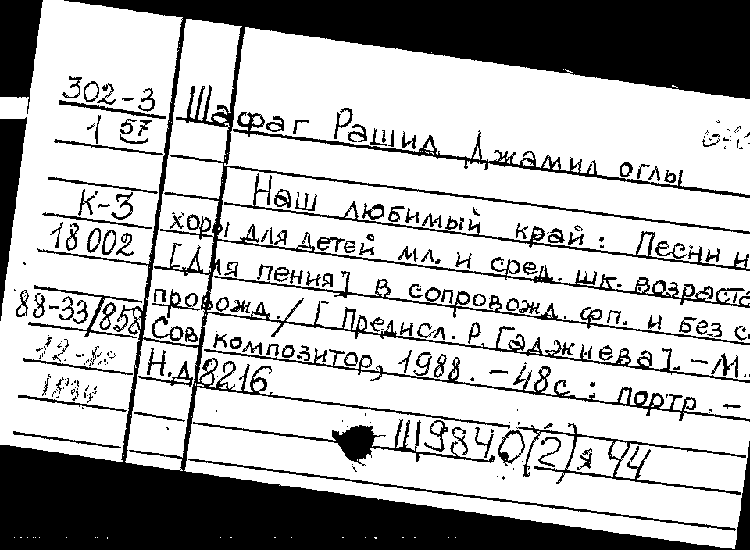 302-3
1 57
Шафаг Рашид Джамил оглы
К-3
18002
88-33/858
Наш любимый край: Песни и
хоры для детей мл. и сред. шк. возраста
[Для пения] в сопровожд. фп. и без с
провожд. / [Предисл. Р. Гаджиева]. - М.
Сов композитор, 1988. - 48с.: портр. -
Н.д 8216.
Щ984.0(2)я44